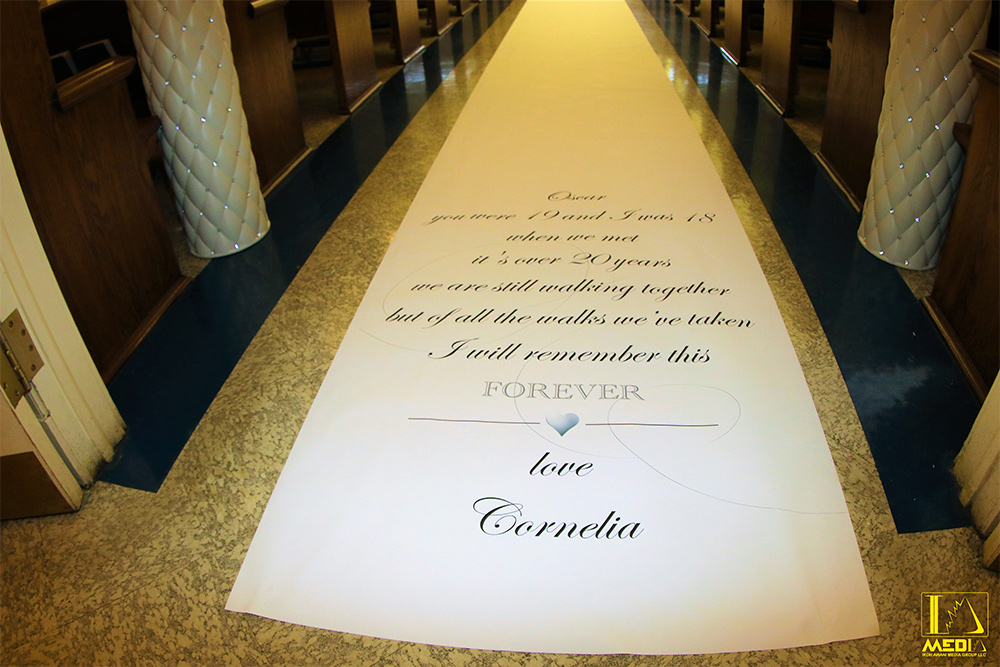 Oscar
you were 19 and I was 18
when we met
it's over 20 years
we are still walking together
but of all the walks we've taken
I will remember this
FOREVER
love
Cornelia
MEDIA
MEDIA